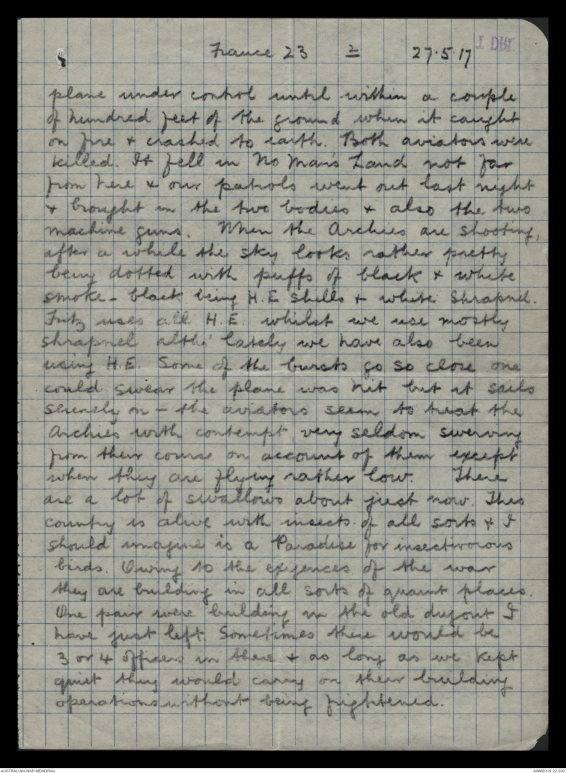 France 23 2 27.5.17
plane under control until within a couple
of hundred feet of the ground when it caught
on fire & crashed to earth. Both aviators were
killed. It fell in No Man's Land not far
from here & our patrols went out last night
& brought in the two bodies & also the two
machine guns. When the Archies are shooting,
after a while the sky looks rather pretty
being dotted with puffs of black & white
smoke - black being H.E shells & white shrapnel.
Fritz uses all H.E. whilst we use mostly
shrapnel altho' lately we have also been
using H.E. Some of the bursts go so close one
could swear the plane was hit but it sails
serenely on - the aviators seem to treat the
Archies with contempt very seldom swerving
from their course on account of them except
when they are flying rather low. There
are a lot of swallows about just now. This
country is alive with insects of all sorts & I
should imagine is a Paradise for insectivorous
birds. Owing to the exigences of the war
they are building in all sorts of quaint places.
One pair were building in the old dugout I
have just left. Sometimes there would be
3 or 4 officers in there & as long as we kept
quiet they would carry on their building
operations without being frightened.
AUSTRALIAN WAR MEMORIAL